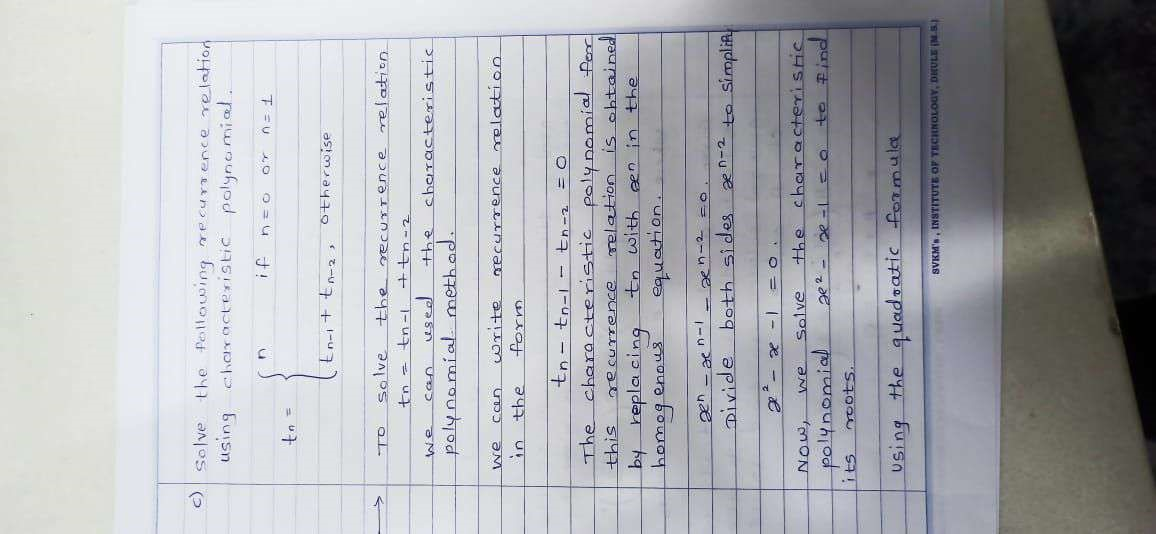 c) solve the following recurrence relation
using characteristic polynomial.
tn = { n if n=0 or n=1
{ tn-1 + tn-2, otherwise
→ To solve the recurrence relation
tn = tn-1 + tn-2
we can used the characteristic
polynomial method.
we can write recurrence relation
in the form
tn - tn-1 - tn-2 = 0
The characteristic polynomial for
this recurrence relation is obtained
by replacing tn with xn in the
homogenous equation.
xn - xn-1 - xn-2 = 0.
Divide both sides xn-2 to simplify
x² - x - 1 = 0.
Now, we solve the characteristic
polynomial x² - x - 1 = 0 to find
its roots.
using the quadratic formula
SVKM's, INSTITUTE OF TECHNOLOGY, DHULE (M.S.)